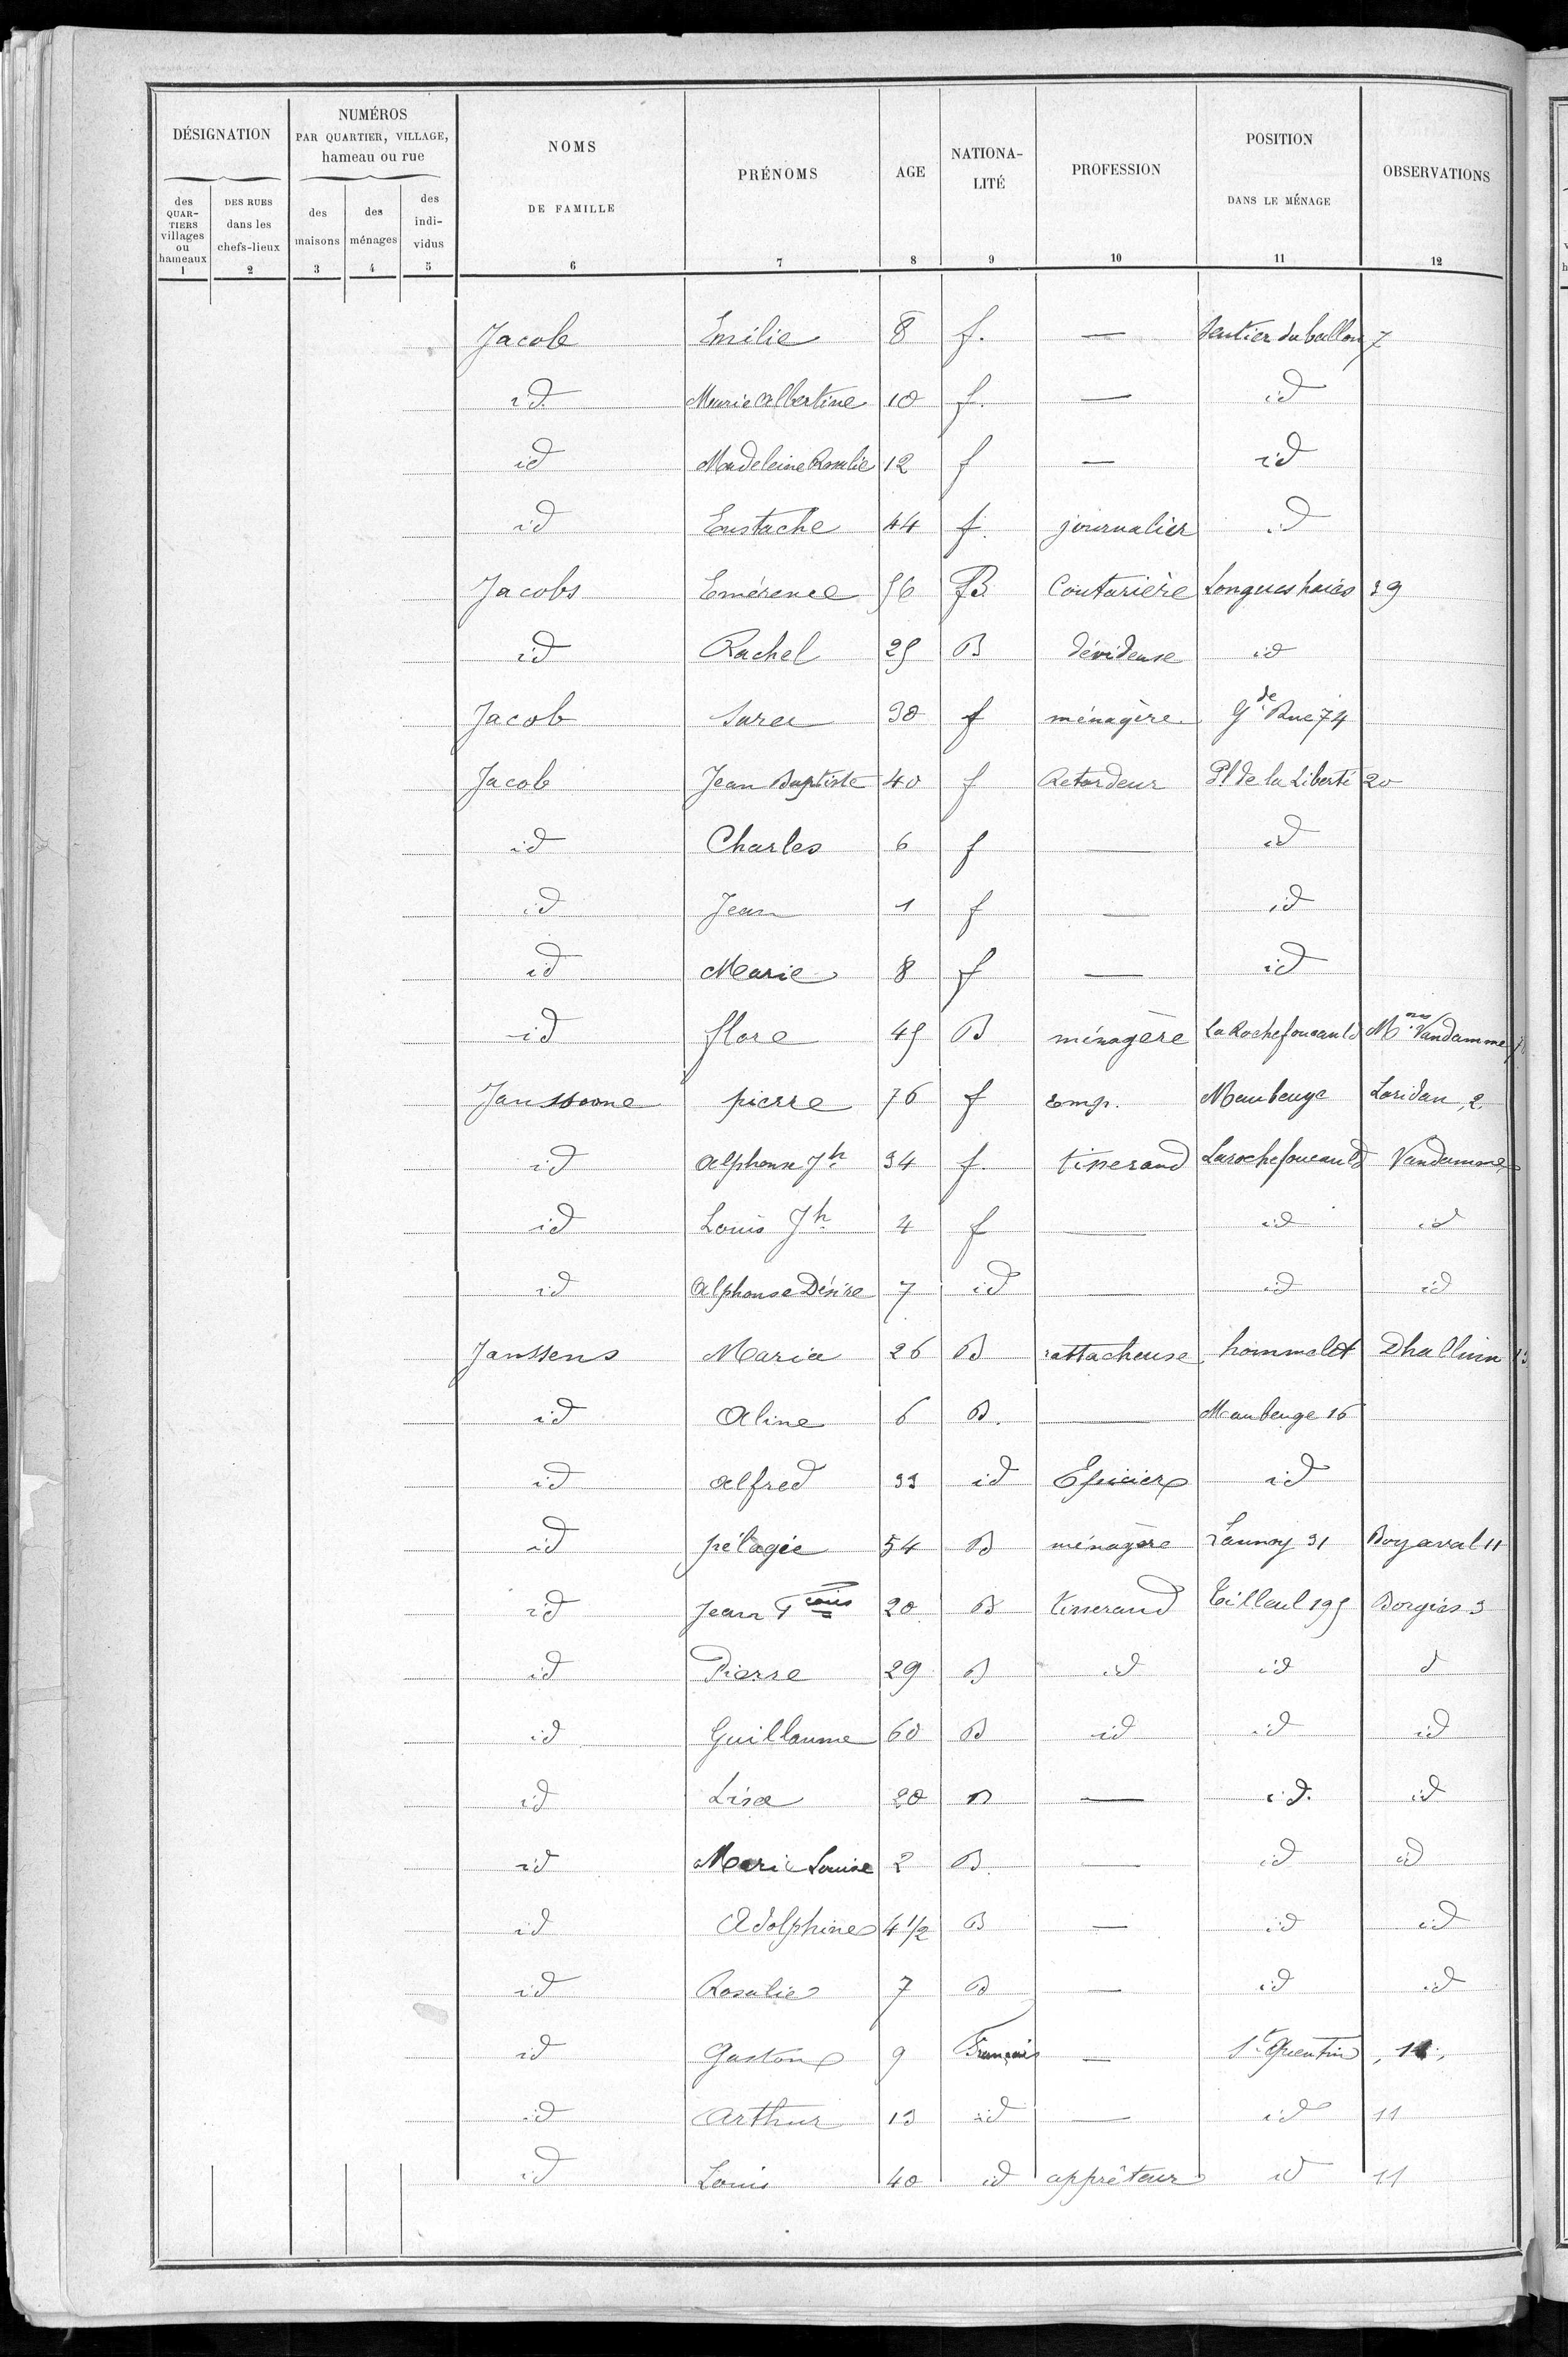 DÉSIGNATION
NUMÉROS PAR QUARTIER, VILLAGE, hameau ou rue
NOMS DE FAMILLE
PRÉNOMS
AGE
NATIONALITÉ
PROFESSION
POSITION DANS LE MÉNAGE
OBSERVATIONS
des QUARTIERS villages ou hameaux
DES RUES dans les chefs-lieux
des maisons
des ménages
des individus
1 2 3 4 5 6 7 8 9 10 11 12
Jacob Emilie 8 f. — Sentier du ballon 7
id Marie Albertine 10 f. — id
id Madeleine Rosalie 12 f — id
id Eustache 44 f. journalier id
Jacobs Emérence 56 B Couturière Longues haies 39
id Rachel 25 B dévideuse id
Jacob Sara 38 f ménagère Gde Rue 74
Jacob Jean Baptiste 40 f Retordeur Pl. de la Liberté 20
id Charles 6 f — id
id Jean 1 f — id
id Marie 8 f — id
id flore 45 B ménagère La Rochefoucauld Mons Vandamme
Janssoone pierre 76 f Emp. Maubeuge Loridan, 2
id Alphonse Jh 34 f. tisserand Larochefoucauld Vandamme
id Louis Jh 4 f — id id
id Alphonse Désiré 7 id — id id
Janssens Maria 26 B rattacheuse hommelet Dhalluin 13
id Aline 6 B. — Maubeuge 16
id Alfred 33 id Epicier id
id pélagie 54 B ménagère Lannoy 31 Boyaval 11
id Jean Fcois 20 B tisserand Tilleul 195 Borgies 3
id Pierre 29 B id id d
id Guillaume 60 B id id id
id Lisa 20 B — id. id
id Marie Louise 2 B. — id id
id Adolphine 4 1/2 B — id id
id Rosalie 7 B — id id
id Gaston 9 Français — St Quentin, 11,
id Arthur 13 id — id 11
id Louis 40 id apprêteur id 11